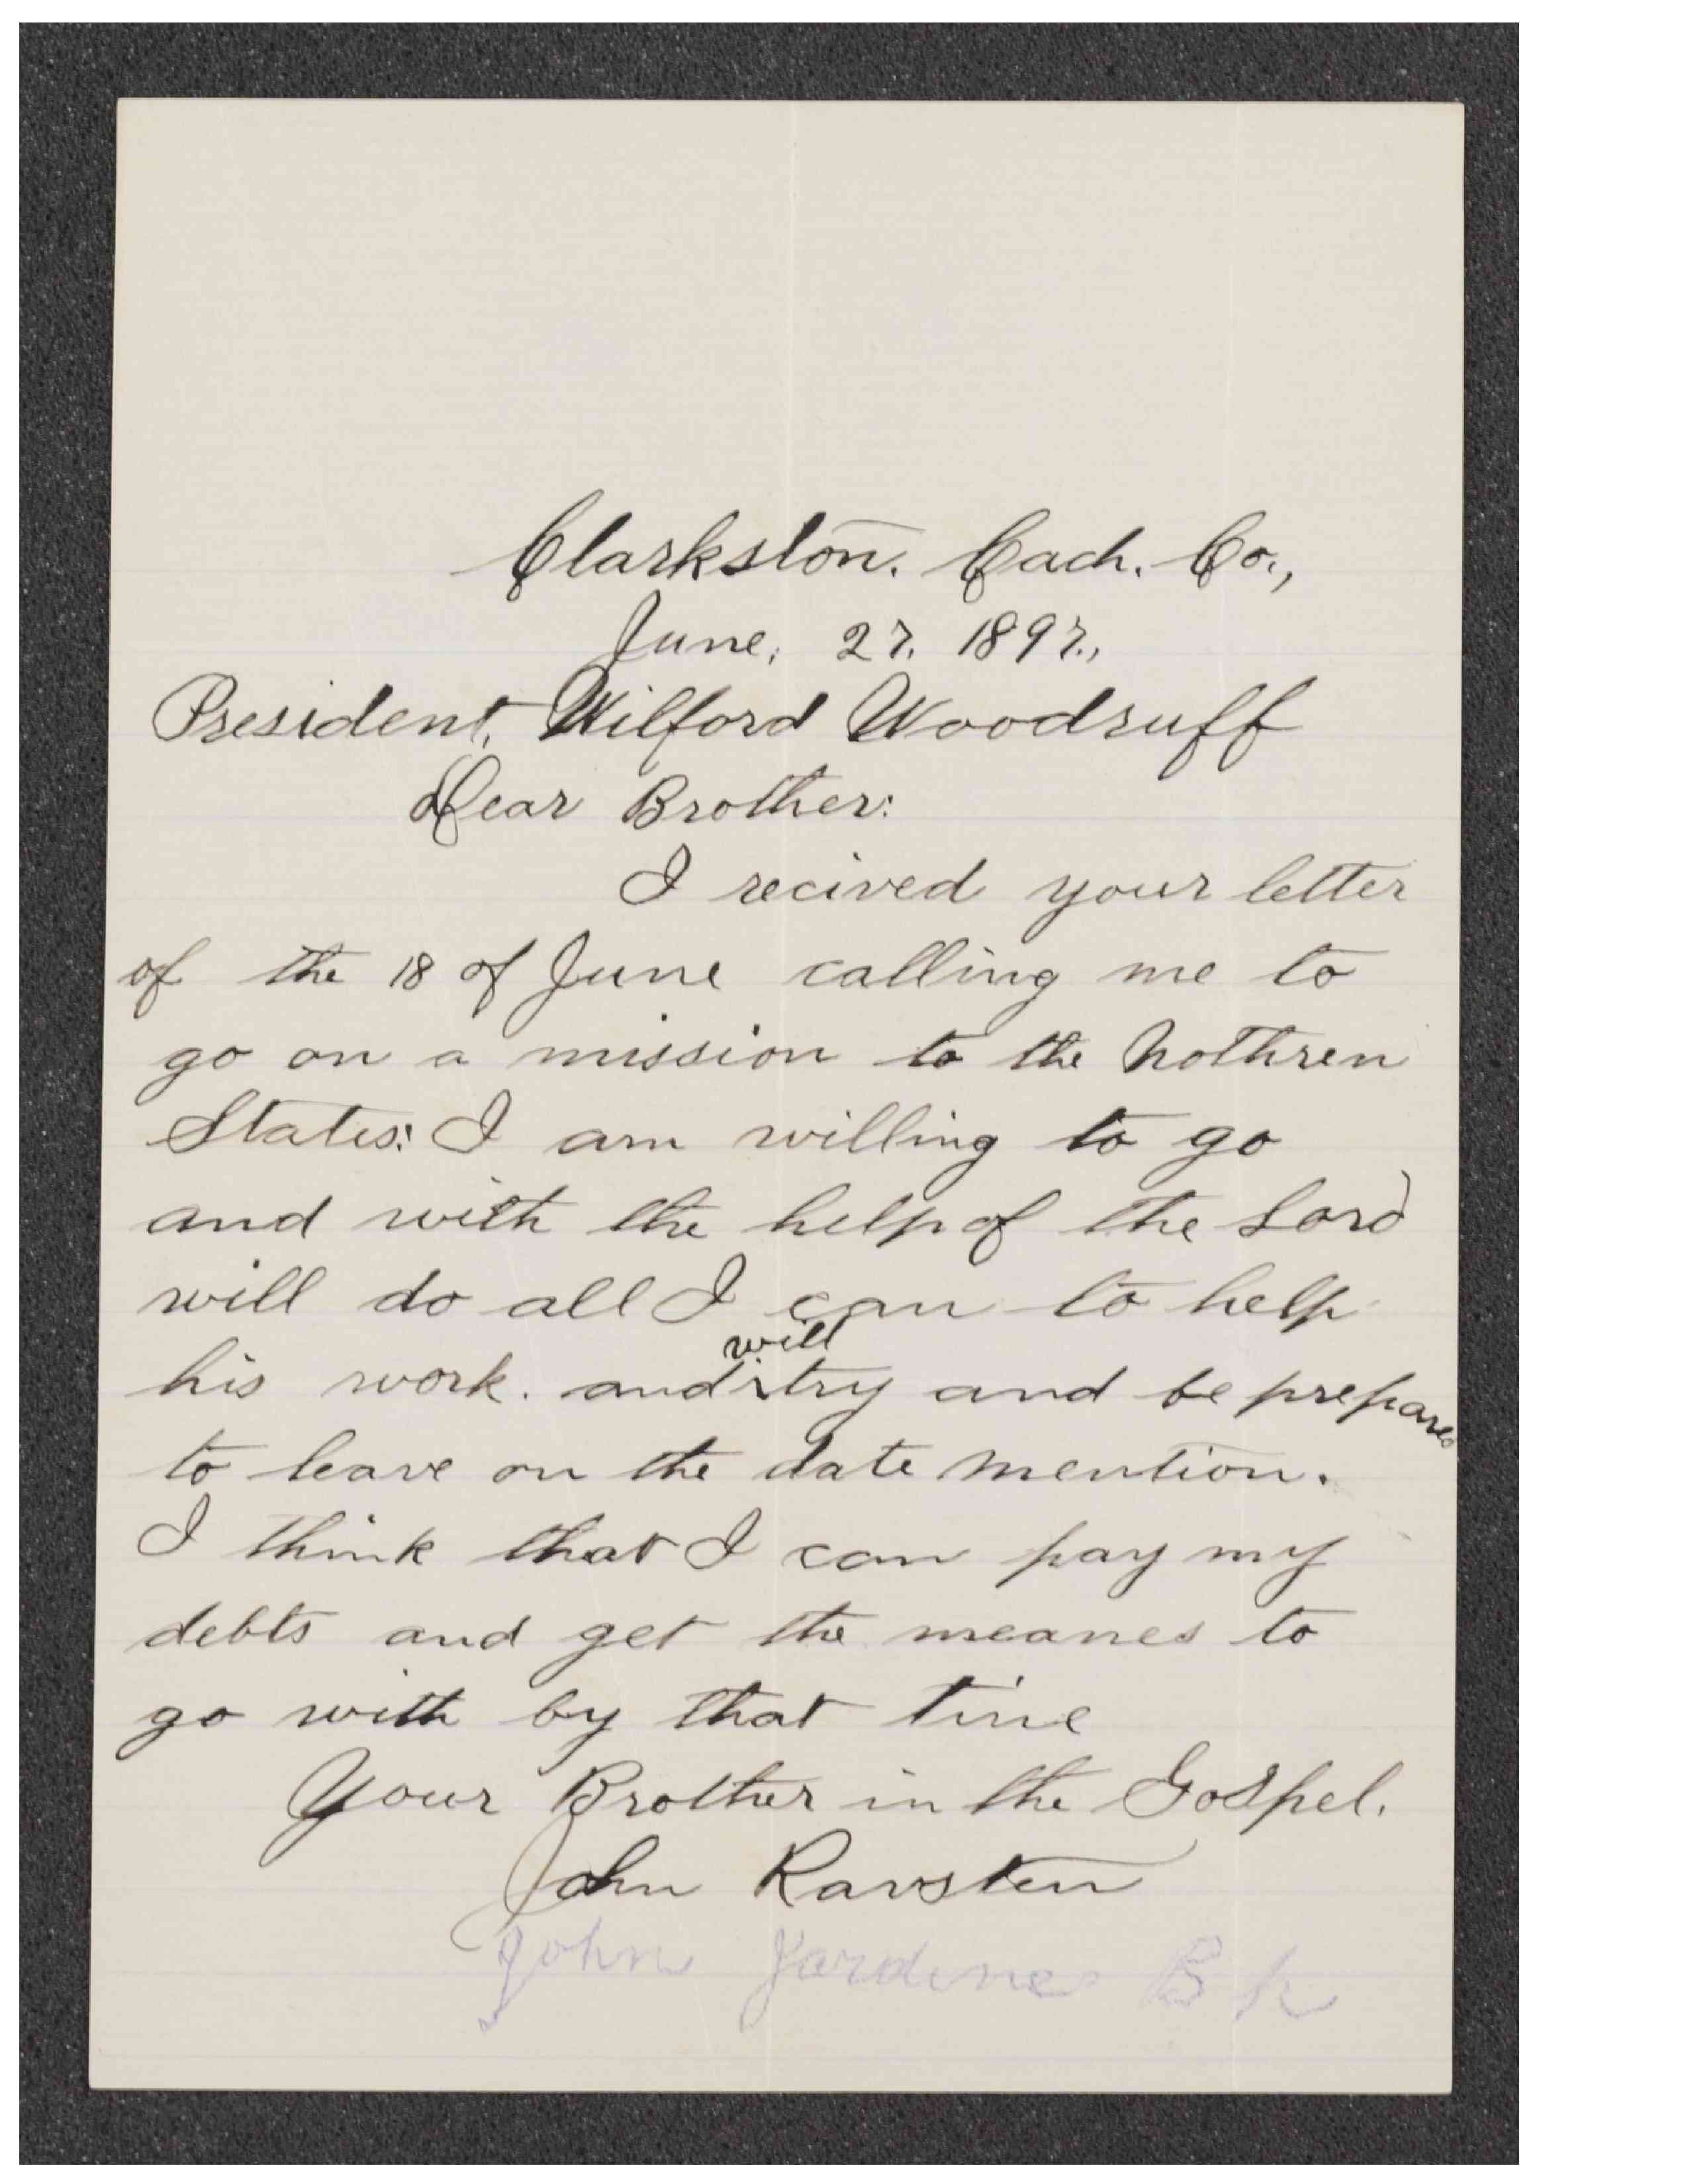 Clarkston. Cach. Co.,
June, 27. 1897.,
President, Wilford Woodruff
Dear Brother:
I recived your letter
of the 18 of June calling me to
go on a mission to the Nothren
States: I am willing to go
and with the help of the Lord
will do all I can to help
his work. and will try and be prepared
to leave on the date mention.
I think that I can pay my
debts and get the meanes to
go with by that time
Your Brother in the Gospel.
John Ravsten
John Jardine Bp